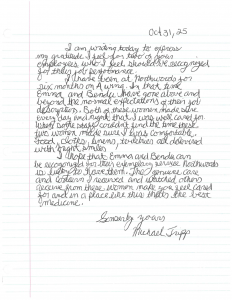 Oct 31, 25
I am writing today to express
my gratitude I feel for two of your
employees who I feel should be recognized
for their job performance.
I have been at Northwoods for
six months on A wing. In that time
Emma and Bendu have gone above and
beyond the normal expectations of their job
description. Both of these women made sure
every day and night that I was well cared for
when some people couldn't find the time these
two women made sure I was comfortable
food, clothes, linens, toiletries all delivered
with bright smiles!
I hope that Emma and Bendu can
be recognized for their exemplary service Northwoods
is lucky to have them. The genuine care
and concern I received and watched others
receive from these women make you feel cared
for and in a place like this that's the best
medicine.
Sincerely yours
Michael Tripp